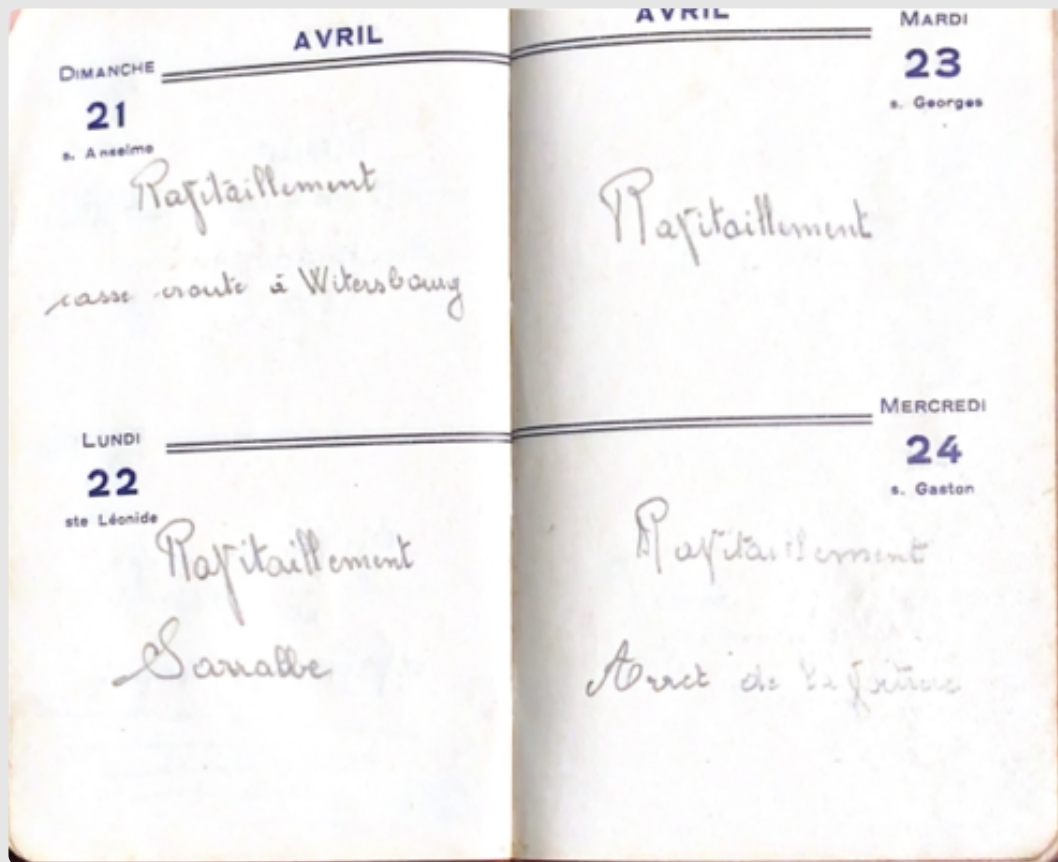 AVRIL
DIMANCHE
21
s. Anselme
Rapitaillement
casse croute à Witersbourg
LUNDI
22
ste Léonide
Rapitaillement
Sarralbe
AVRIL
MARDI
23
s. Georges
Rapitaillement
MERCREDI
24
s. Gaston
Rapitaillement
Arret de la